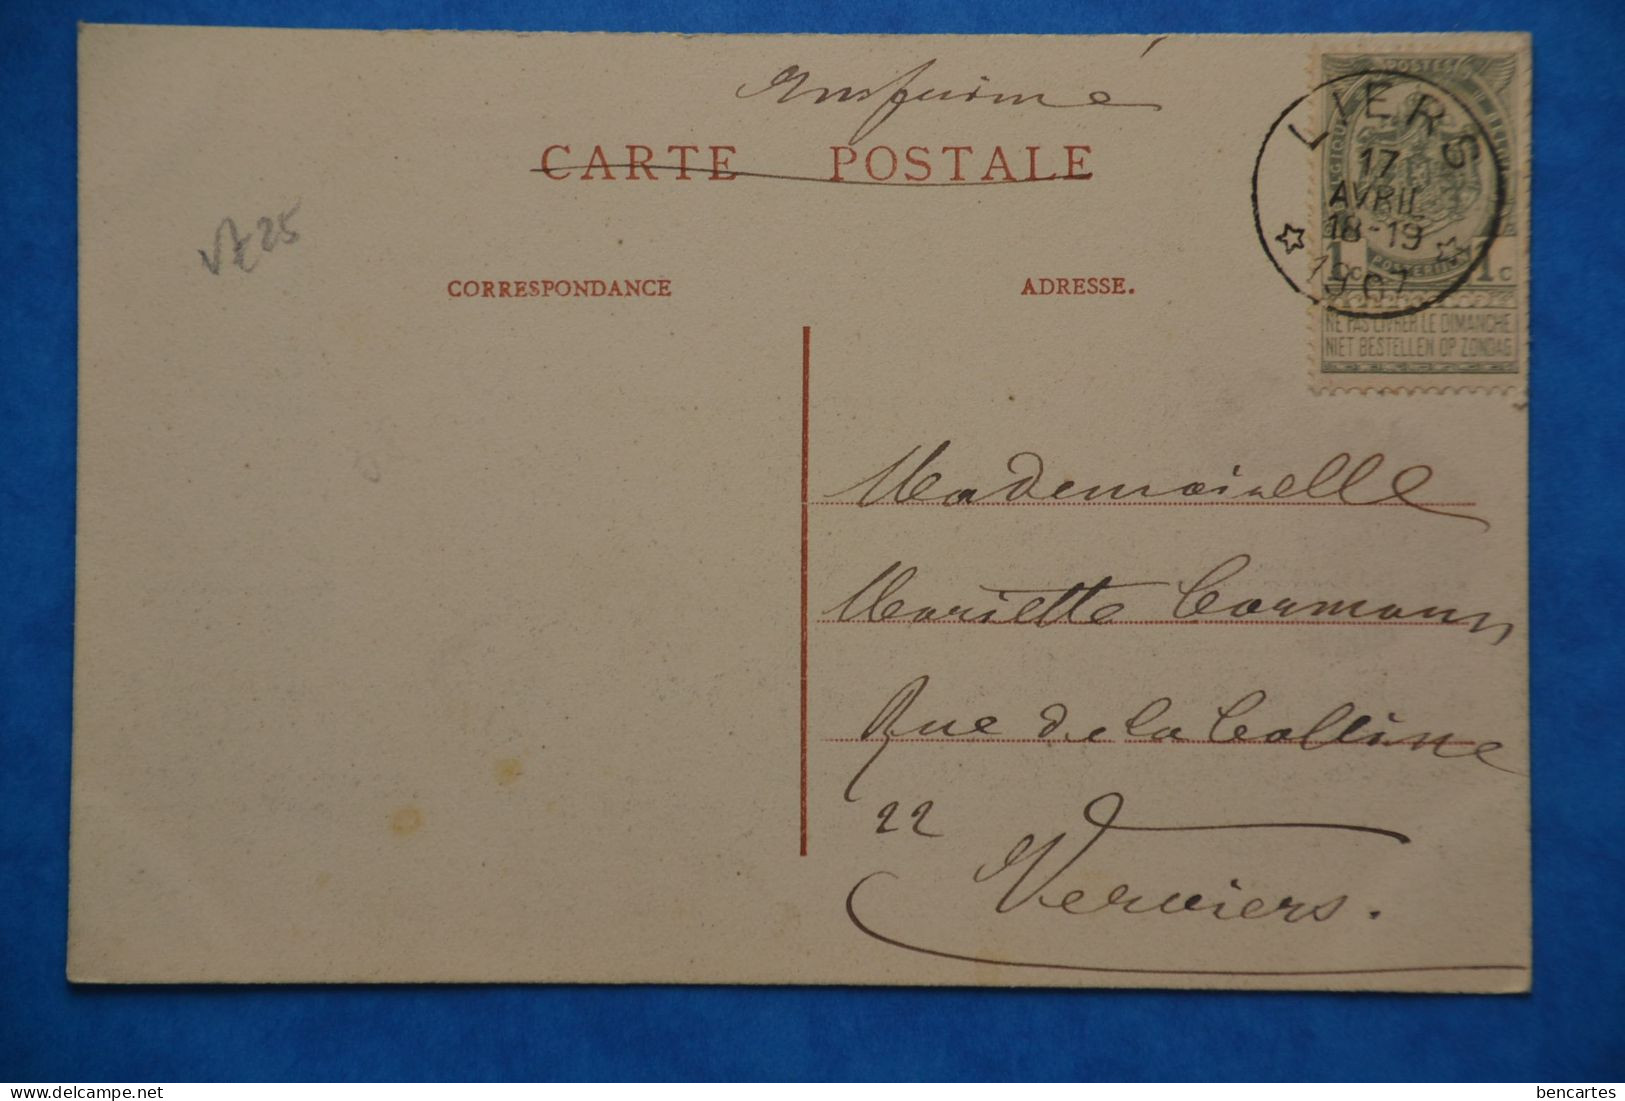 Imprimé
CARTE POSTALE
CORRESPONDANCE
ADRESSE.
LIERS
17
AVRIL
18-19
1907
POSTES
1c 1c
NE PAS LIVRER LE DIMANCHE
NIET BESTELLEN OP ZONDAG
Mademoiselle
Mariette Cormann
Rue de la Colline
22
Verviers.
delcampe.net
bencartes